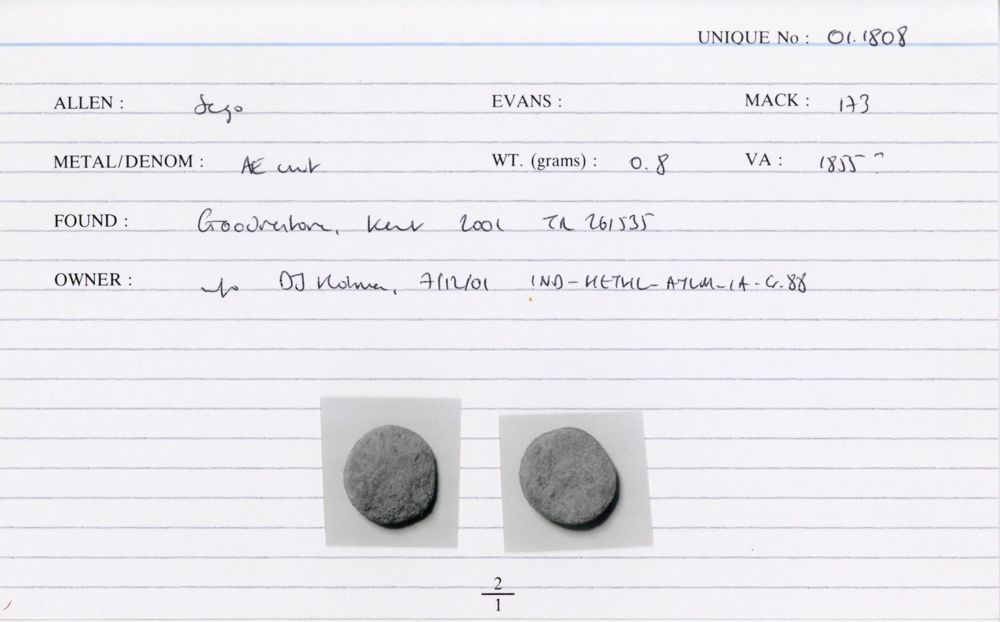 UNIQUE No : 01.1808
ALLEN : Sego EVANS : MACK : 173
METAL/DENOM : AE unit WT. (grams) : 0.8 VA : 1855?
FOUND : Goodnestone, Kent 2001 TR 261535
OWNER : DJ Holman, 7/12/01
2
1